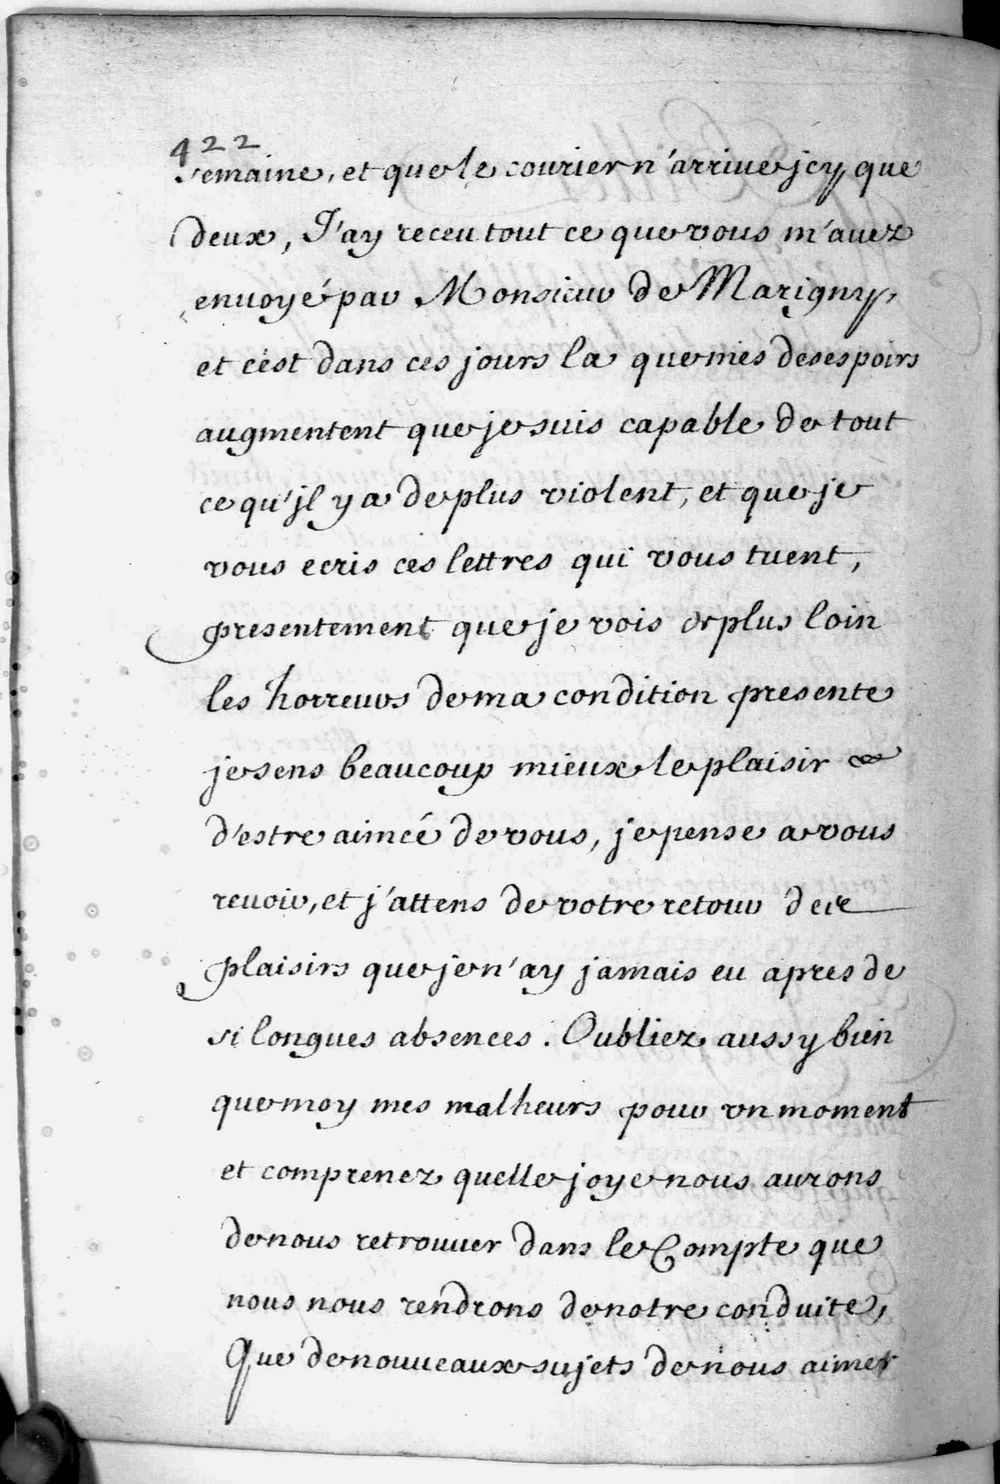 422
semaine, et que le courier n'arrive jcy que
deux, J'ay receu tout ce que vous m'avez
envoyé par Monsieur de Marigny,
et c'est dans ces jours la que mes desespoirs
augmentent que je suis capable de tout
ce qu'jl y a de plus violent, et que je
vous ecris ces lettres qui vous tuent,
presentement que je vois de plus loin
les horreurs de ma condition presente
je sens beaucoup mieux le plaisir
d'estre aimée de vous, je pense a vous
revoir, et j'attens de votre retour des
plaisirs que je n'ay jamais eu apres de
si longues absences. Oubliez aussy bien
que moy mes malheurs pour vn moment
et comprenez quelle joye nous aurons
de nous retrouver dans le Compte que
nous nous rendrons de notre conduite,
Que de nouveaux sujets de nous aimer